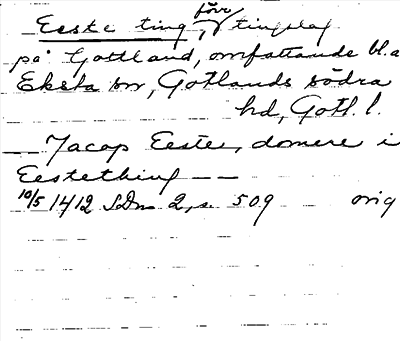 Eeste ting, förr tingslag
på Gottland, omfattande bl.a
Eksta sn, Gotlands södra
hd, Gotl. l.
Jacop Eeste, domere i
Eestething – –
10/5 1412 SDns 2, s. 509 orig